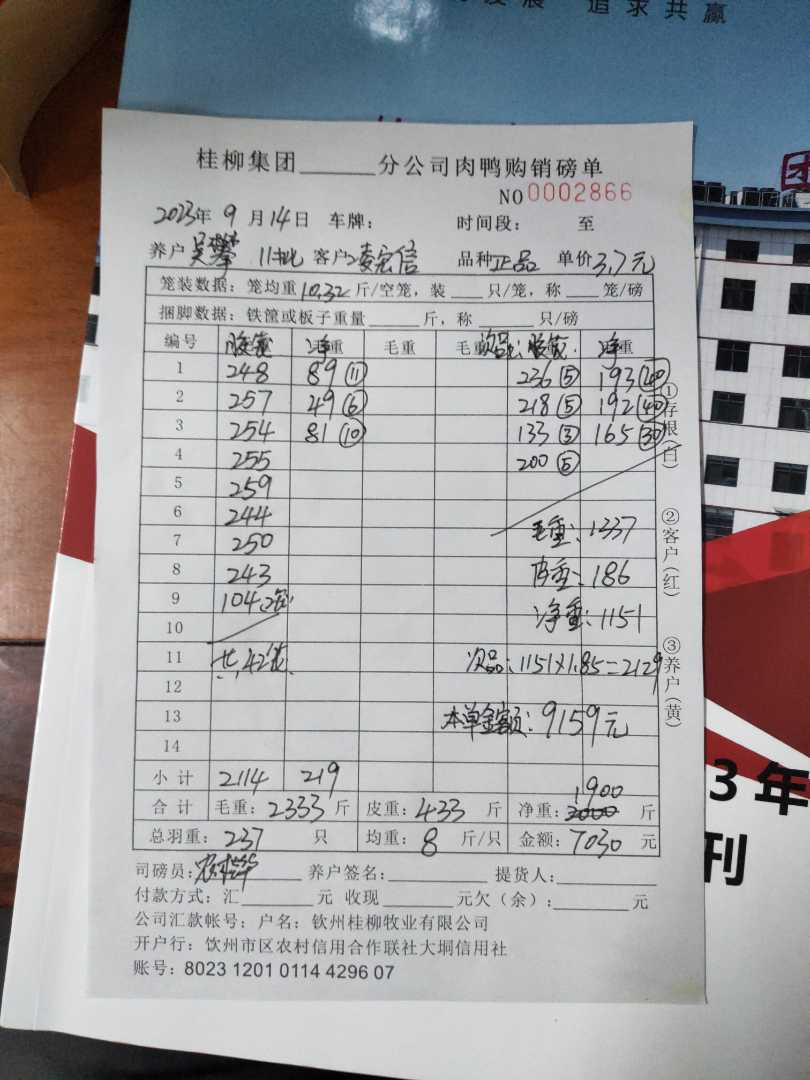 追求共赢
桂柳集团______分公司肉鸭购销磅单
NO 0002866
2023年 9月14日 车牌: 时间段: 至
养户 吴攀 11批 客户 凌宏信 品种 正品 单价 3.7元
笼装数据: 笼均重 10.32 斤/空笼,装___只/笼,称___笼/磅
捆脚数据: 铁筐或板子重量_____斤,称____只/磅
编号 净重 毛重 毛重 次品: 净重
1 248 89⑪ 236⑤ 193㊵
2 257 49⑥ 218⑤ 192㊵
3 254 81⑩ 133③ 165㉚
4 255 200⑤
5 259
6 244 毛重: 1337
7 250
8 243 皮重: 186
9 104 净重: 1151
10
11 共42 次品: 1151×1.85=2129
12
13 本单金额: 9159元
14
小计 2114 219
合计 毛重: 2333 斤 皮重: 433 斤 净重: 1900 斤
总羽重: 237 只 均重: 8 斤/只 金额: 7030 元
司磅员: 养户签名: 提货人:
付款方式: 汇______元 收现______元欠(余):______元
公司汇款帐号: 户名: 钦州桂柳牧业有限公司
开户行: 钦州市区农村信用合作联社大垌信用社
账号: 8023 1201 0114 4296 07
①存根(白)
②客户(红)
③养户(黄)
3年
刊